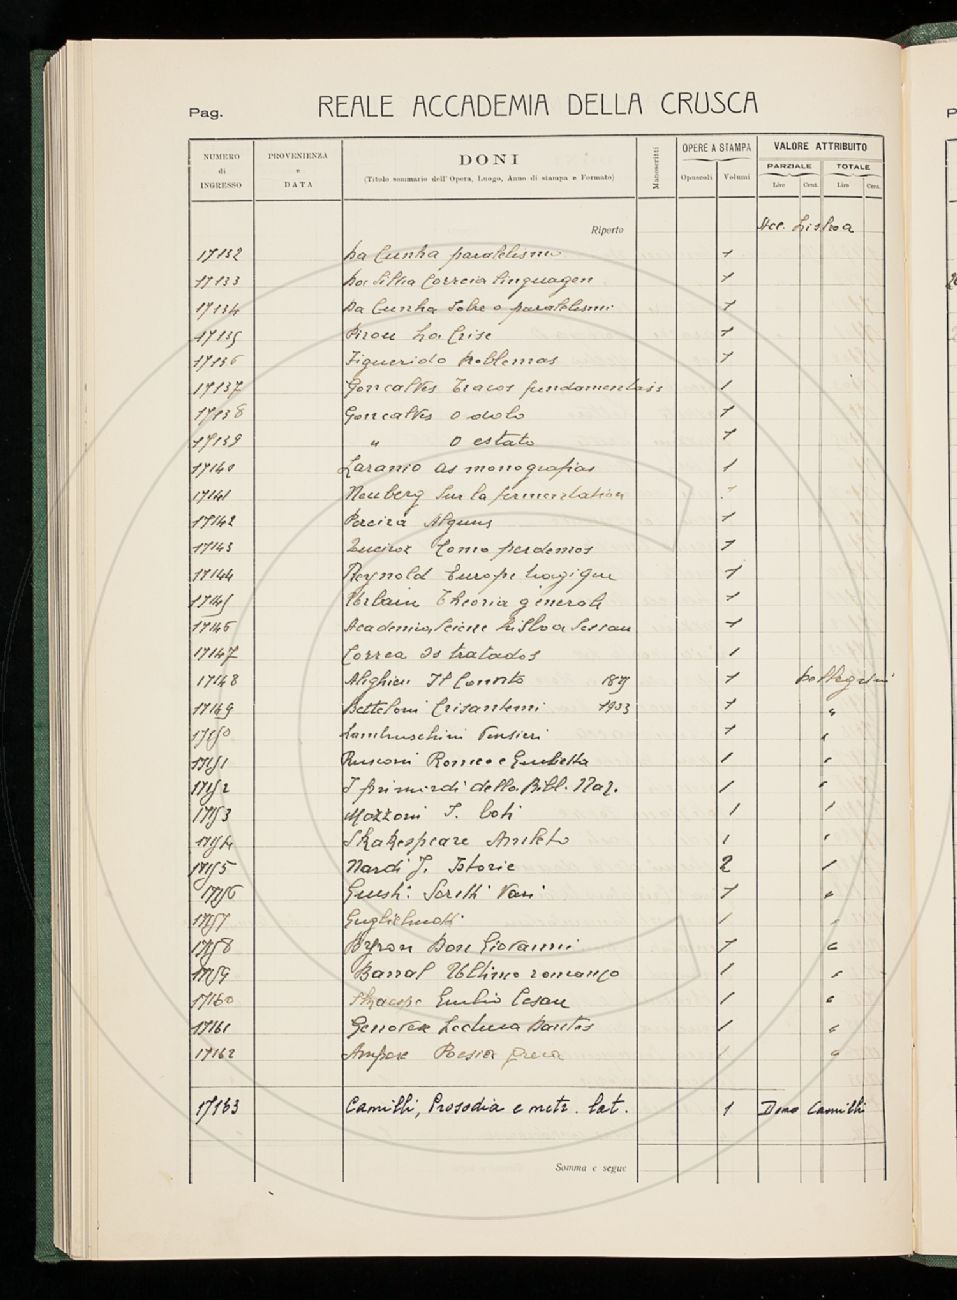 Pag. REALE ACCADEMIA DELLA CRUSCA
NUMERO di INGRESSO
PROVENIENZA e DATA
DONI
(Titolo sommario dell'Opera, Luogo, Anno di stampa e Formato)
Manoscritti
OPERE A STAMPA
Opuscoli Volumi
VALORE ATTRIBUITO
PARZIALE TOTALE
Lire Cent. Lire Cent.
Riporto Acc. Lisboa
17132 Da Cunha paralelismo 1
17133 Da Silva Correia Linguagen 1
17134 Da Cunha Sobre o paralelismi 1
17135 Pirou La Crise 1
17136 Figuerido Problemas 1
17137 Goncalves Tracos fundamentais 1
17138 Goncalves o dolo 1
17139 " o estato 1
17140 Laranio as monografias 1
17141 Neuberg Sur la fermentation 1
17142 Pereira Alguns 1
17143 Como perdemos 1
17144 Reynold Europe tragique 1
17145 Urbain Theoria generale 1
17146 Academia Lisboa 1
17147 Correa Os tratados 1
17148 Alighieri Il Convito 1 Pellegrini
17149 Betteloni Crisantemi 1903 1 "
17150 Lambruschini Pensieri 1 "
17151 Rusconi Romeo e Giulietta 1 "
17152 I primi di della Bibl. Naz. 1 "
17153 Mazzoni I. 1 "
17154 Shakespeare Amleto 1 "
17155 Nardi J. Istorie 2 "
17156 Giusti Scritti Vari 1 "
17157 Guglielmotti 1 "
17158 Byron Don Giovanni 1 "
17159 Barral Ultimo romanzo 1 "
17160 Emilio 1 "
17161 Genovese Lectura Dantis 1 "
17162 Ampere Poesia greca 1 "
17163 Camilli, Prosodia e metr. lat. 1 Dono Camilli
Somma e segue